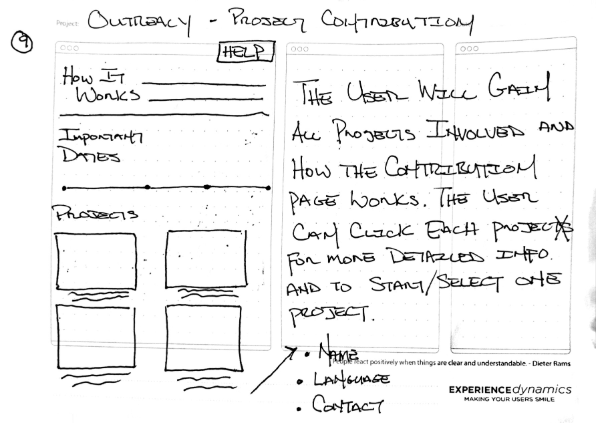 Project: OUTREACY - PROJECT CONTRIBUTION
9
HELP
HOW IT
WORKS
IMPORTANT
DATES
PROJECTS
THE USER WILL GAIN
ALL PROJECTS INVOLVED AND
HOW THE CONTRIBUTION
PAGE WORKS. THE USER
CAN CLICK EACH PROJECT
FOR MORE DETAILED INFO.
AND TO START/SELECT ONE
PROJECT.
• NAME
• LANGUAGE
• CONTACT
People react positively when things are clear and understandable. - Dieter Rams
EXPERIENCE dynamics
MAKING YOUR USERS SMILE